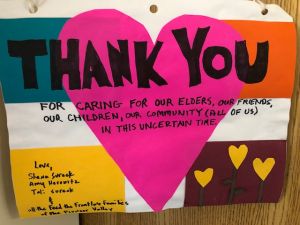 THANK YOU
FOR CARING FOR OUR ELDERS, OUR FRIENDS,
OUR CHILDREN, OUR COMMUNITY (ALL OF US)
IN THIS UNCERTAIN TIME
Love,
Amy Horowitz
&
all the Feed the Frontline families
of the Pioneer Valley